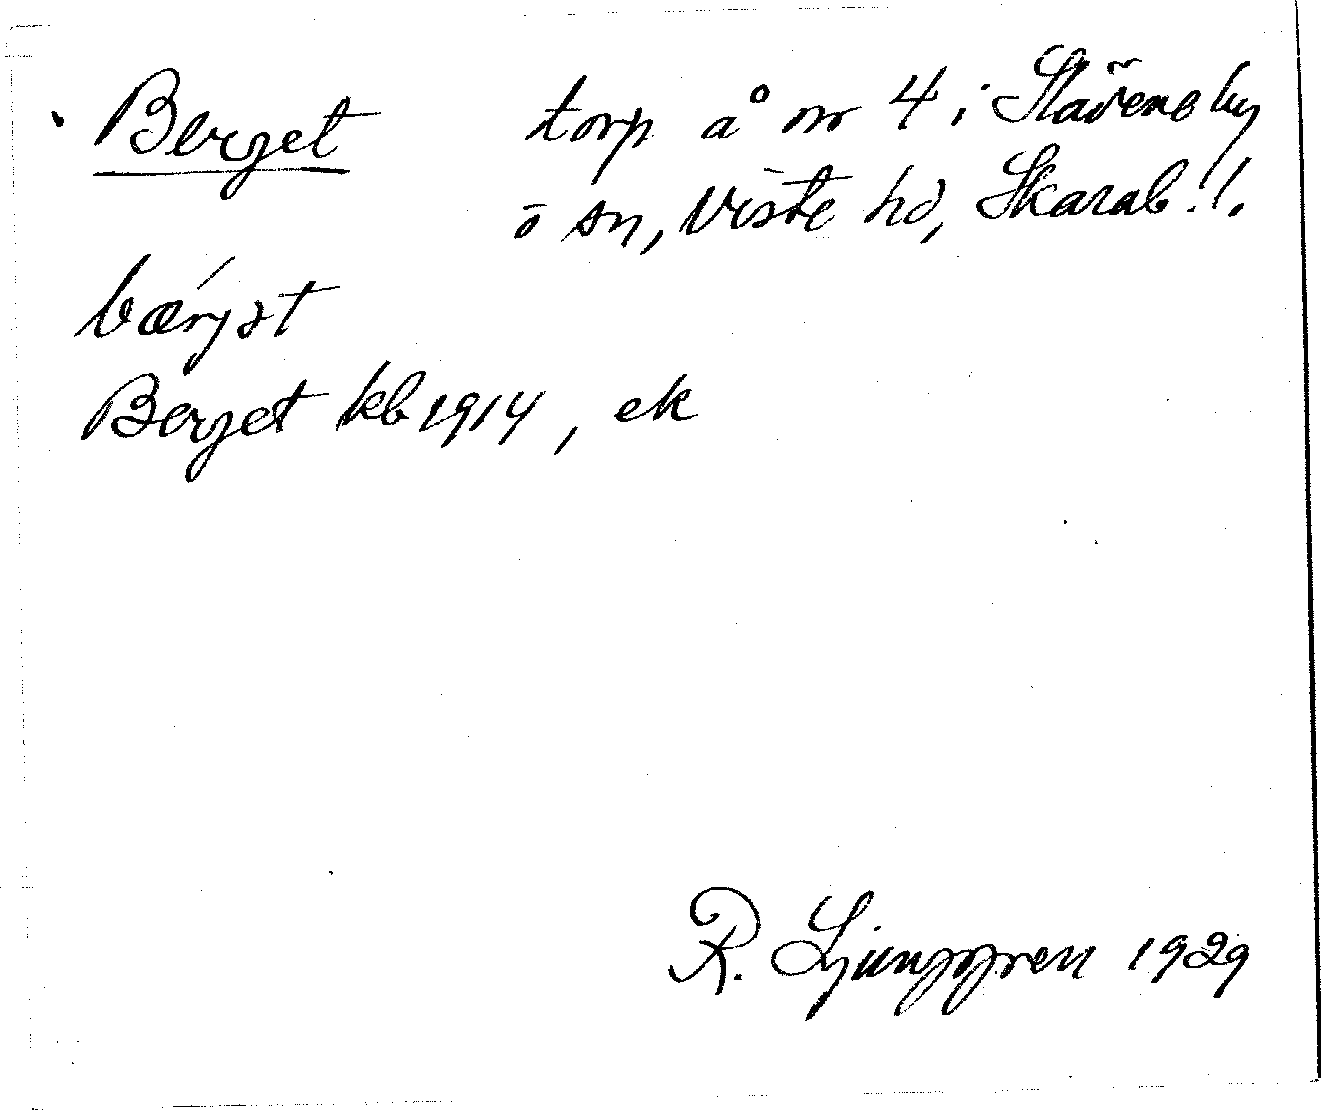 Berget torp å nr 4 i Slävene by
o sn, Viste hd, Skarab. l.
bærjət
Berget kb 1914, ek
R. Ljunggren 1929